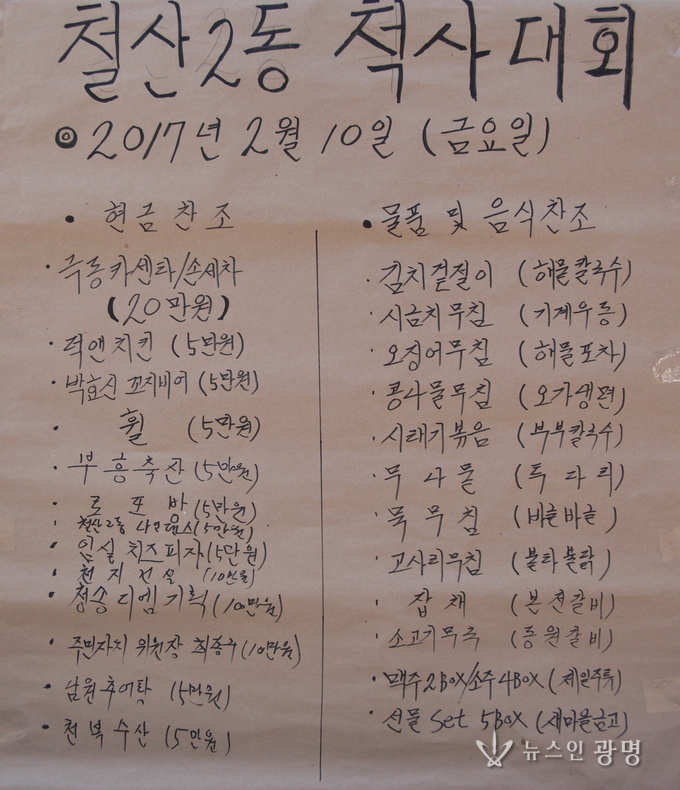 철산2동 척사대회
2017년 2월 10일 (금요일)
• 현금찬조
· 극동카센타/손세차
(20만원)
· 떡앤치킨 (5만원)
· 박효신 꼬지비어 (5만원)
· 훨 (5만원)
· 부흥축산 (5만원)
· 로포바 (5만원)
· 철산2동 (5만원)
· 임실치즈피자 (5만원)
· 천지건설 (10만원)
· 청송디엠기획 (10만원)
· 주민자치위원장 최종구 (10만원)
· 남원추어탕 (5만원)
· 전복수산 (5만원)
• 물품 및 음식찬조
· 김치겉절이 (해물칼국수)
· 시금치무침 (기계우동)
· 오징어무침 (해물포차)
· 콩나물무침 (오가생면)
· 시래기볶음 (부부칼국수)
· 무나물 (투다리)
· 묵무침 (바글바글)
· 고사리무침 (불타불닭)
· 잡채 (본전갈비)
· 소고기무국 (중원갈비)
· 맥주2BOX/소주4BOX (제일주류)
· 선물 Set 5BOX (새마을금고)
뉴스인 광명